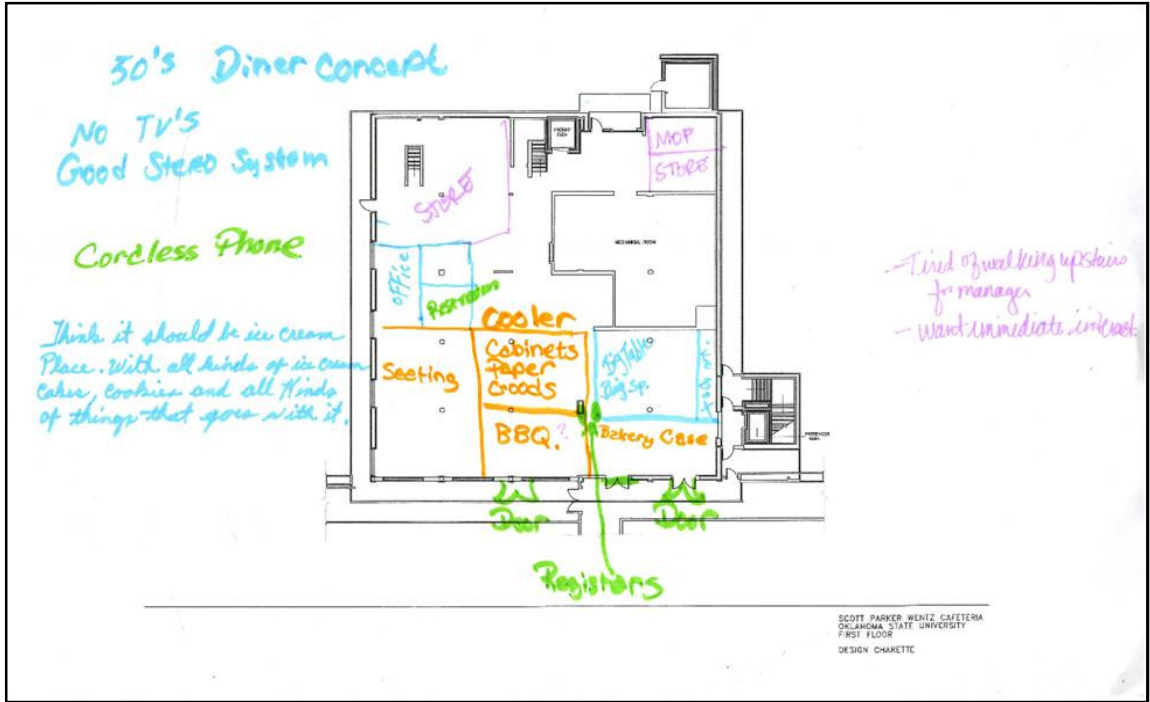 50's Diner Concept
No TV's
Good Stereo System
Cordless Phone
Think it should be ice cream
Place. With all kinds of ice cream
Cakes, cookies and all Kinds
of things that goes with it.
MOP
STORE
STORE
MECHANICAL ROOM
office
Restroom
Cooler
Seeting
Cabinets
Paper
Goods
Big Table
Big Sp.
BBQ.?
Bakery Case
Door
Door
Registers
- Tired of walking upstairs
for manager
- Want immediate
SCOTT PARKER WENTZ CAFETERIA
OKLAHOMA STATE UNIVERSITY
FIRST FLOOR
DESIGN CHARETTE